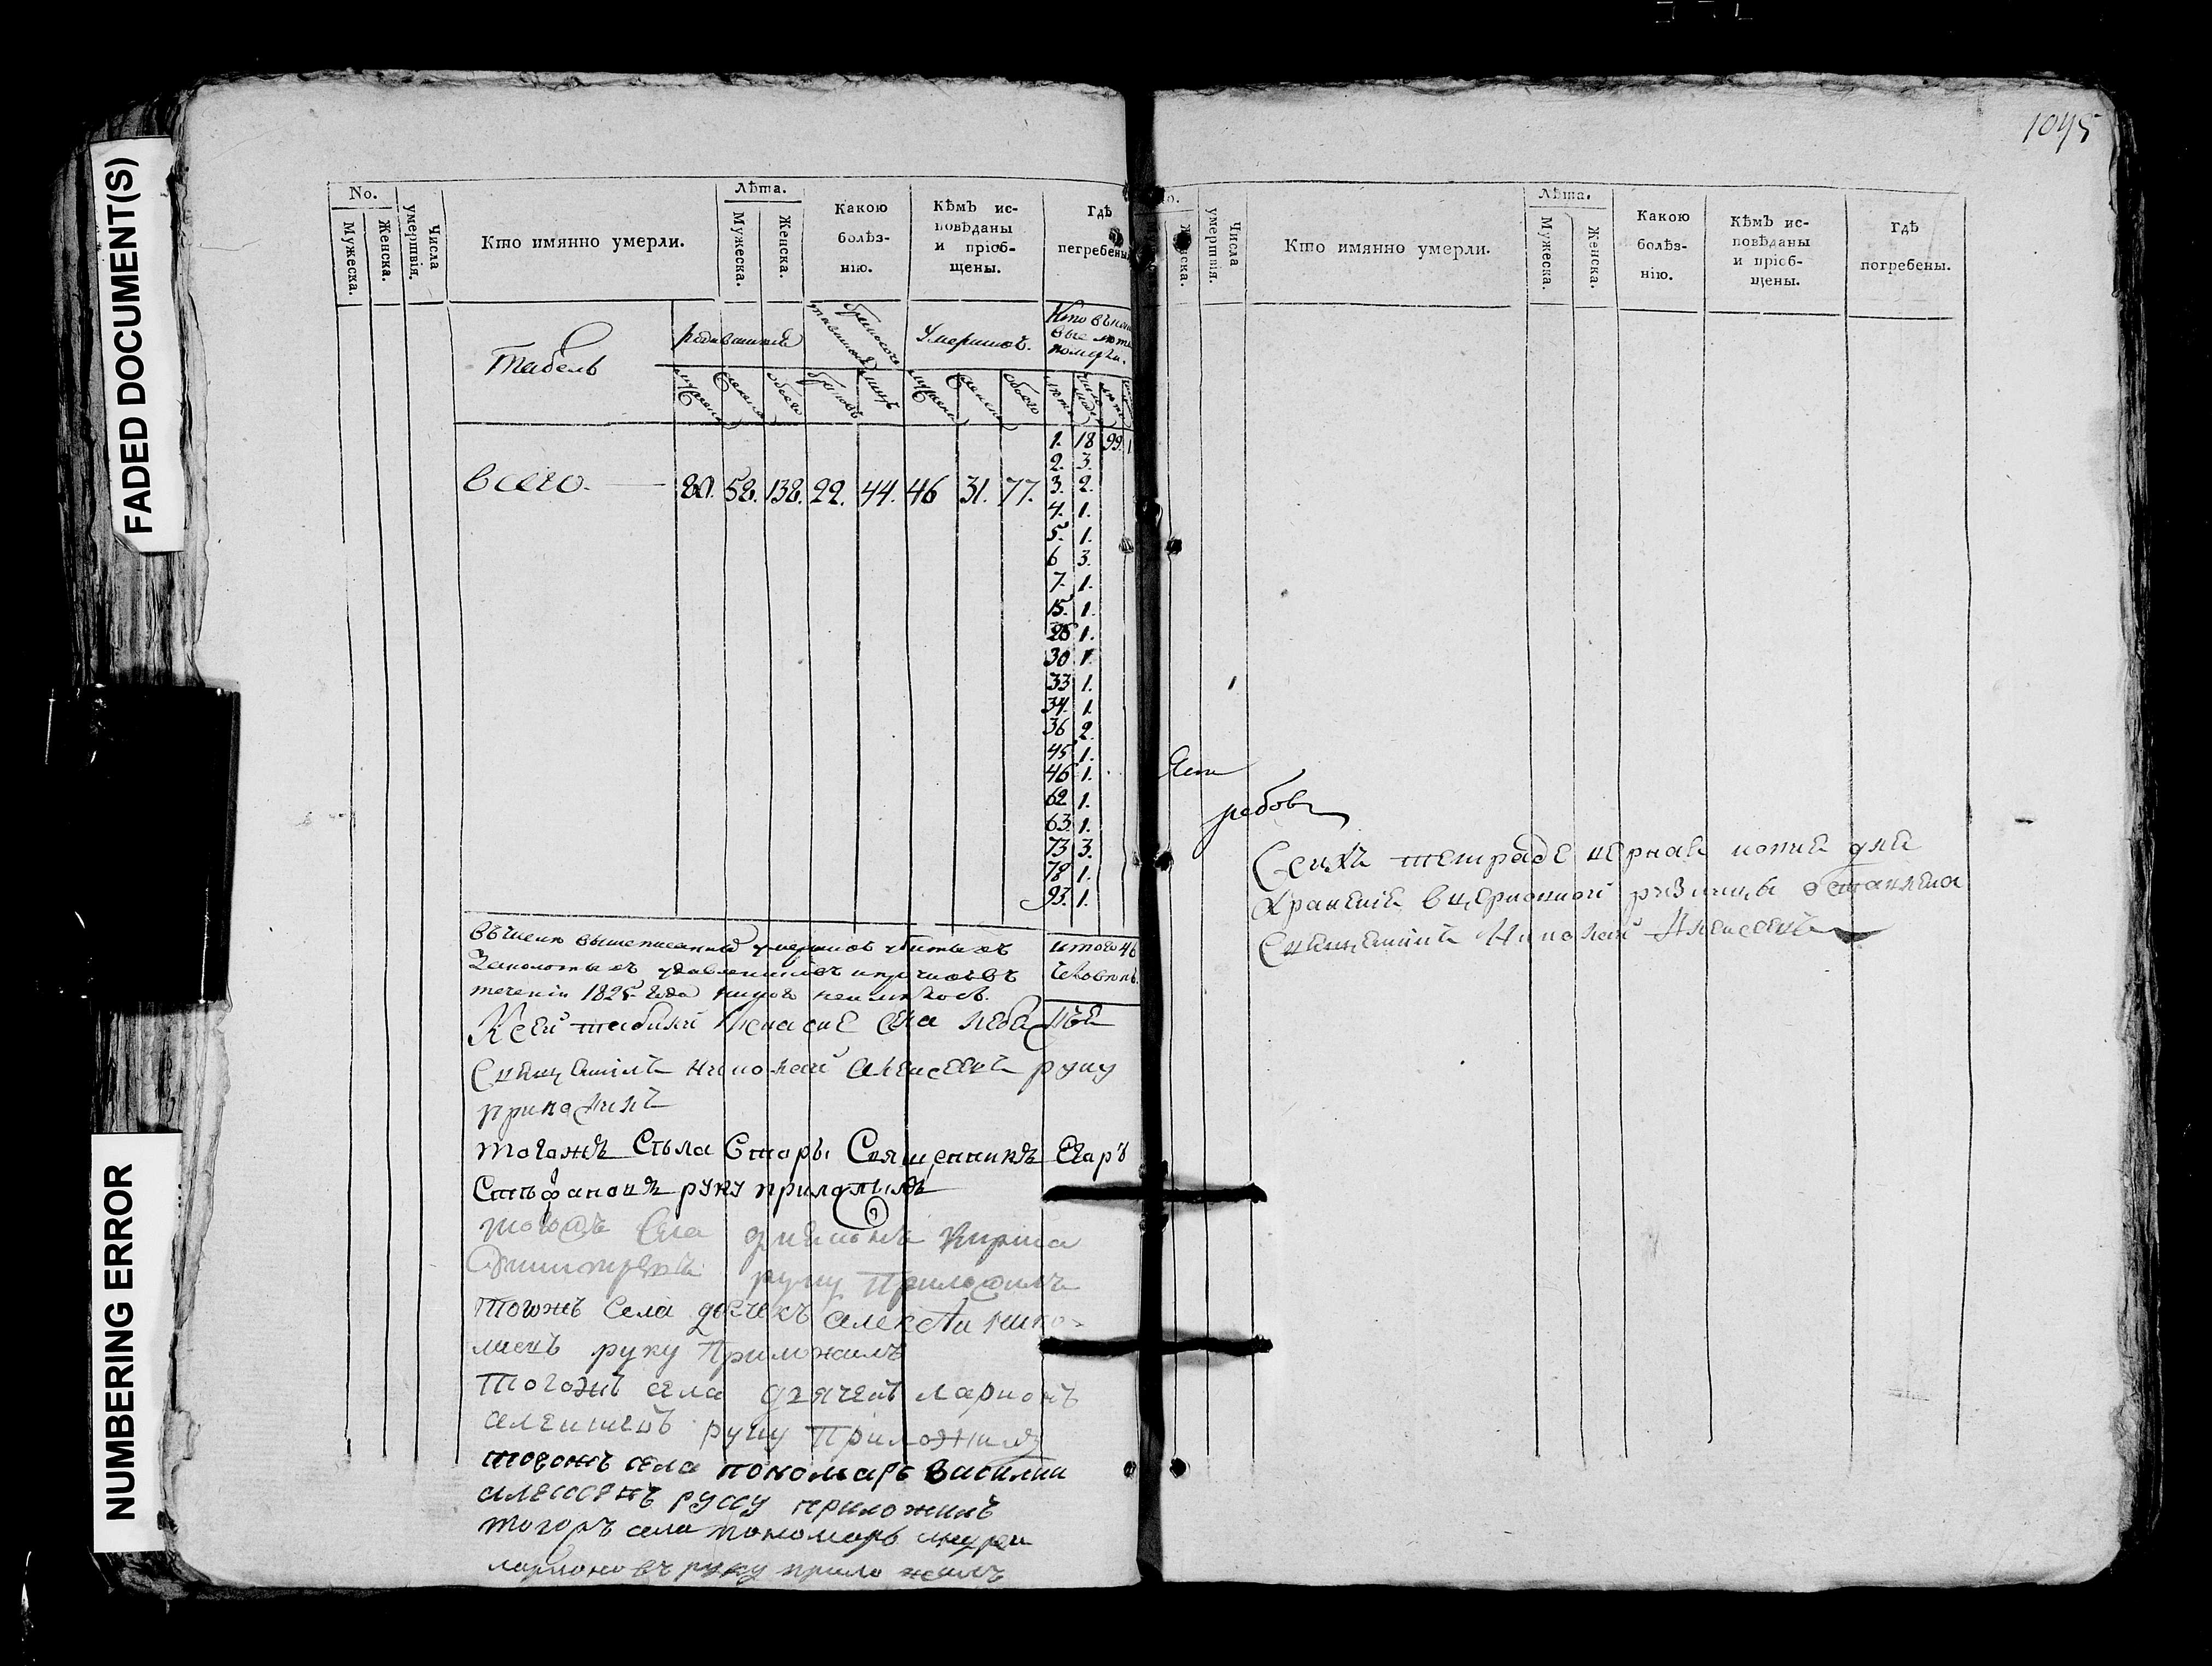 FADED DOCUMENT(S)
NUMBERING ERROR
1045
No.
Мужеска.
Женска.
Числа умертвія.
Кто имянно умерли.
Лѣта.
Мужеска.
Женска.
Какою
болѣз-
нію.
Кѣмъ ис-
повѣданы
и пріоб-
щены.
Гдѣ
погребены
Табель
родившихся
Умершихъ.
всего.
80. 58. 138. 22. 44. 46 31. 77.
1. 18 99. 1
2. 3.
3. 2.
4. 1.
5. 1.
6 3.
7. 1.
15. 1.
25 1.
30 1.
33 1.
34. 1.
36 2.
45 1.
46 1.
62 1.
63. 1.
73 3.
78 1.
93. 1.
итого 46
человекъ.
въ число вышеписанныхъ умершихъ убитыхъ
заколотыхъ удавленныхъ и прочихъ въ
теченіи 1825 года никого неимѣлось.
Ксей табели
Священникъ Николай Алексеевъ руку
приложилъ
тогожъ Села Священникъ Егоръ
Стефановъ руку приложилъ
тогожъ Села Кирила
Димитревъ руку Приложилъ
тогожъ Села дьячекъ Алексѣи Нико-
лаевъ руку Приложилъ
Тогожъ села дьячекъ Ларионъ
руку Приложилъ
тогожъ села пономарь Василии
алексеевъ руку приложилъ
тогожъ села пономарь
ларионовъ руку приложилъ
о.
Женска.
Числа умертвія.
Кто имянно умерли.
Лѣта.
Мужеска.
Женска.
Какою
болѣз-
нію.
Кѣмъ ис-
повѣданы
и пріоб-
щены.
Гдѣ
погребены.
Яст
ребовъ
Сихъ тетраде копия для
Хранения в церковной ризницы оставлена
Священникъ Николай Алексеевъ